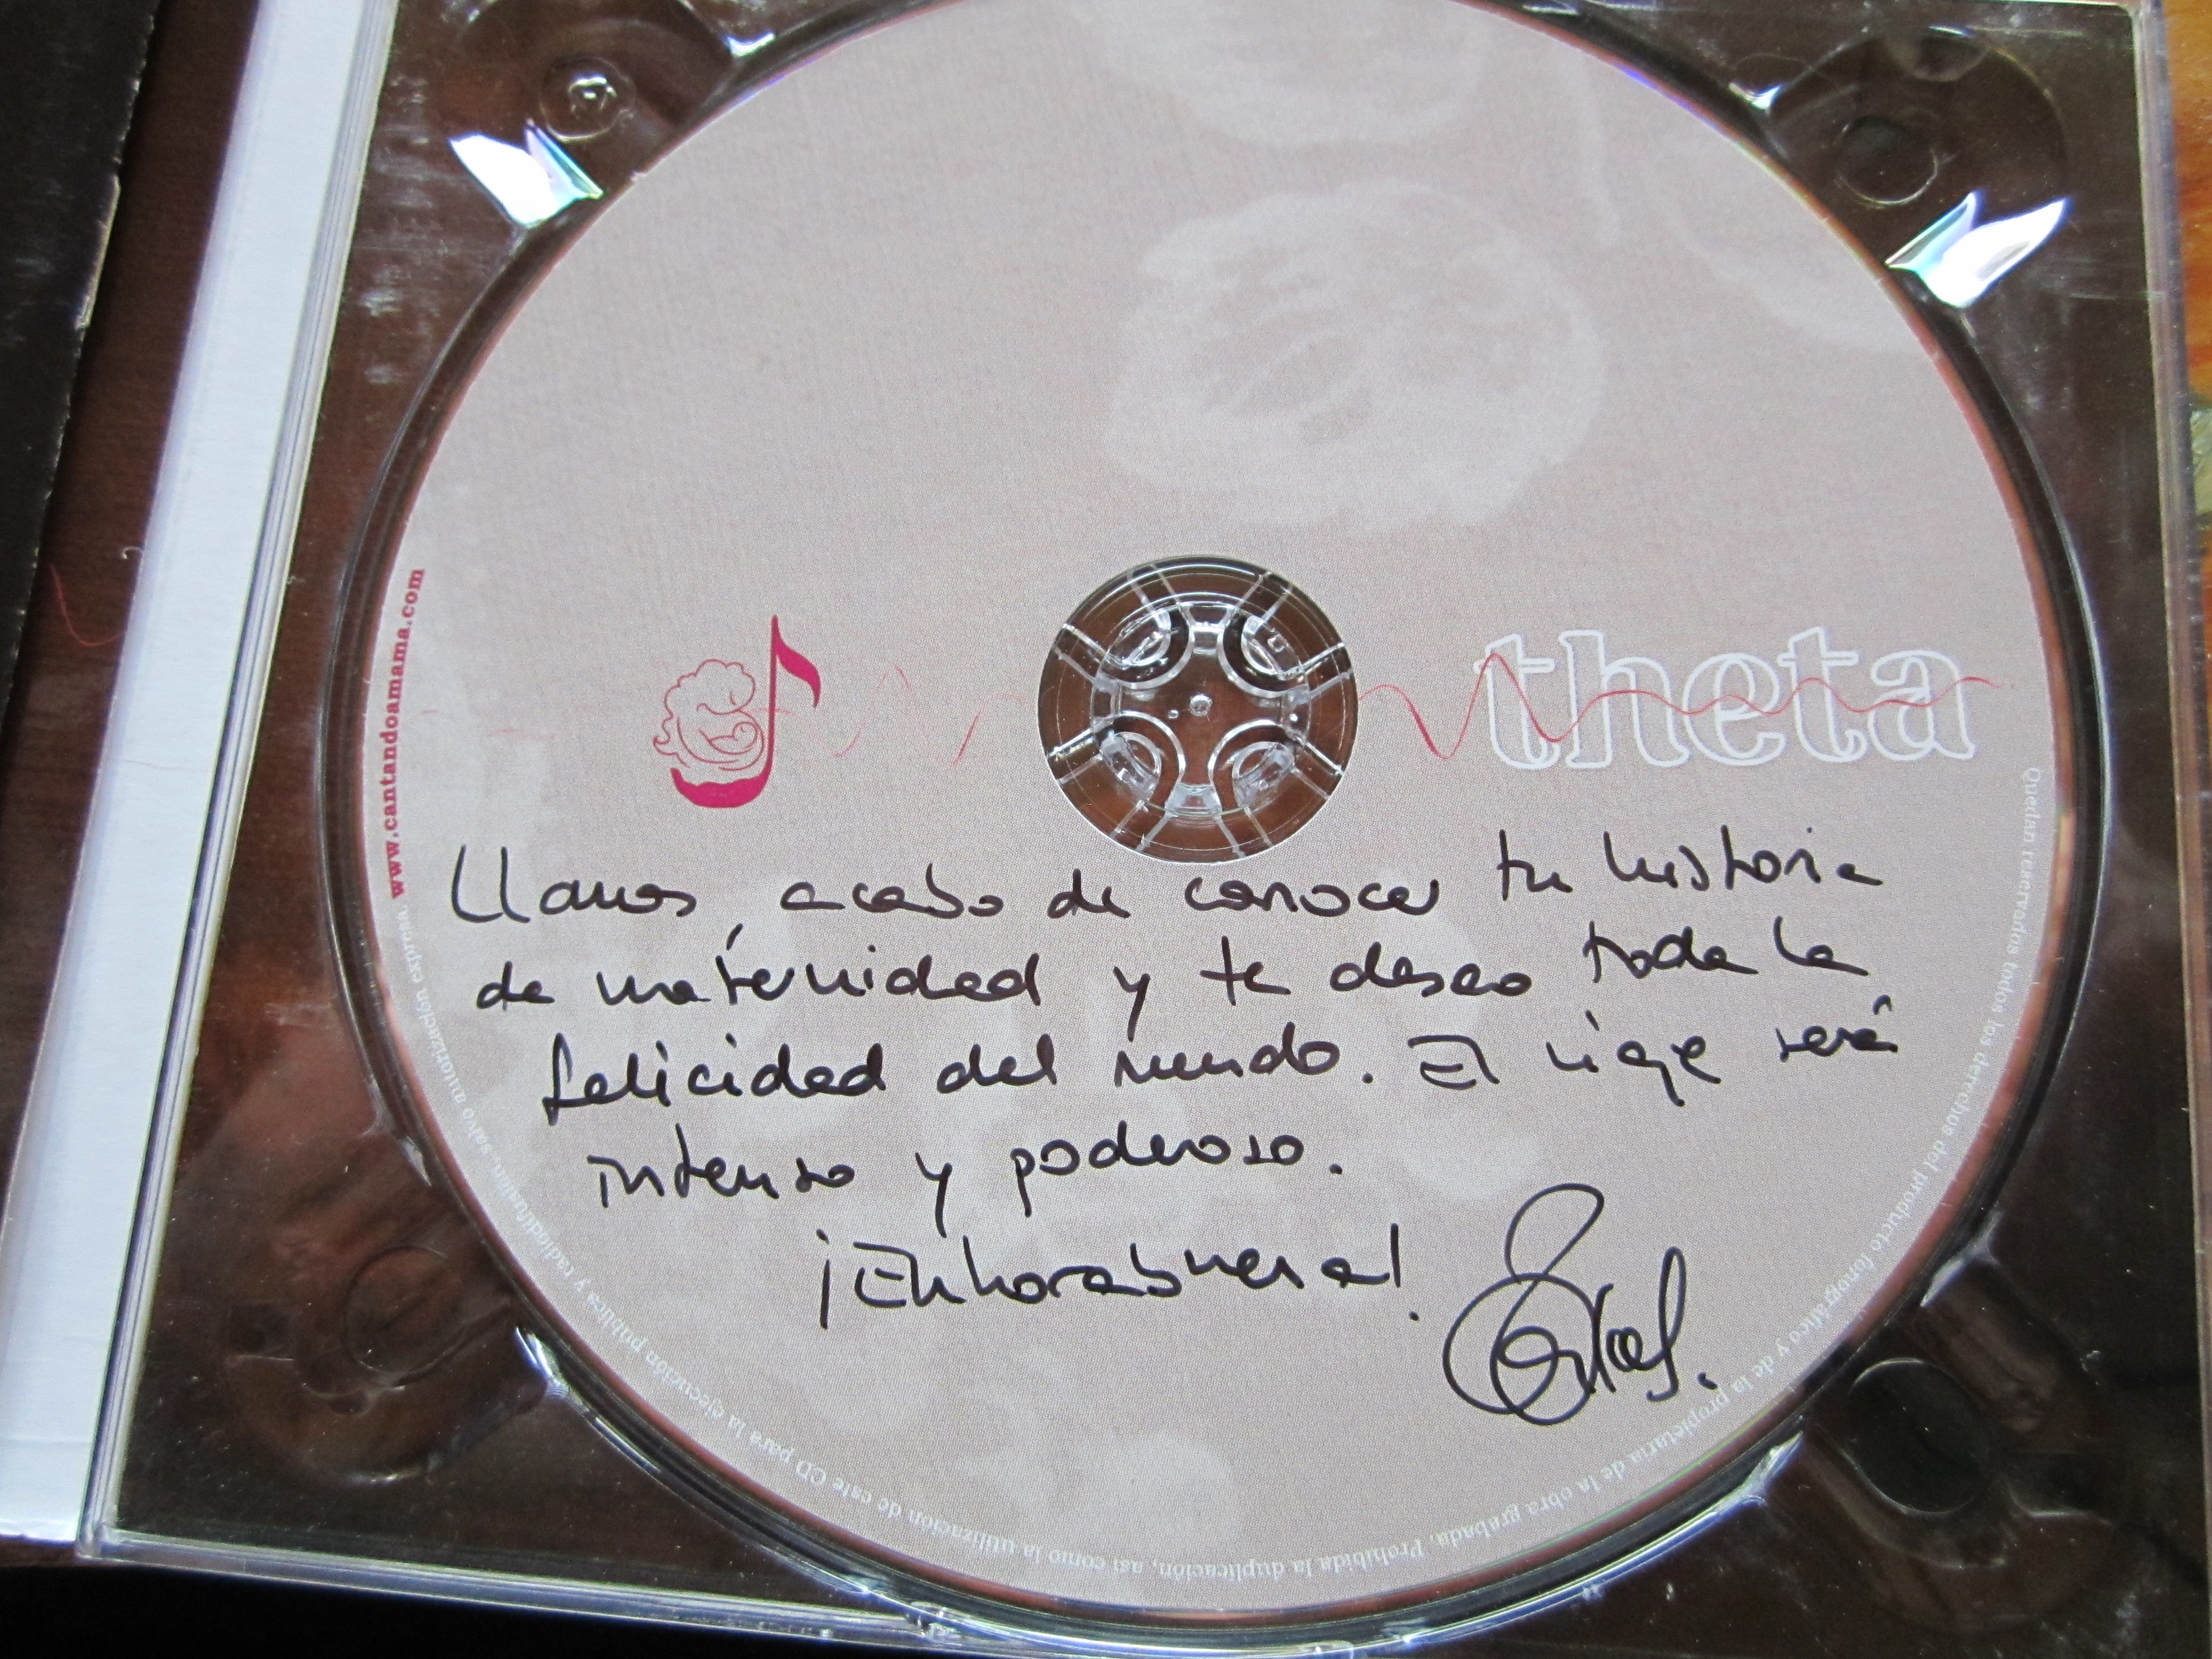 www.cantandoamama.com
theta
Llanos, acabo de conocer tu historia
de maternidad y te deseo toda la
felicidad del mundo. El viaje será
intenso y poderoso.
¡Enhorabuena!
Quedan reservados todos los derechos del producto fonográfico y de la propietaria de la obra grabada. Prohibida la duplicación, así como la utilización de este CD para la ejecución pública y radiodifusión, salvo autorización expresa.